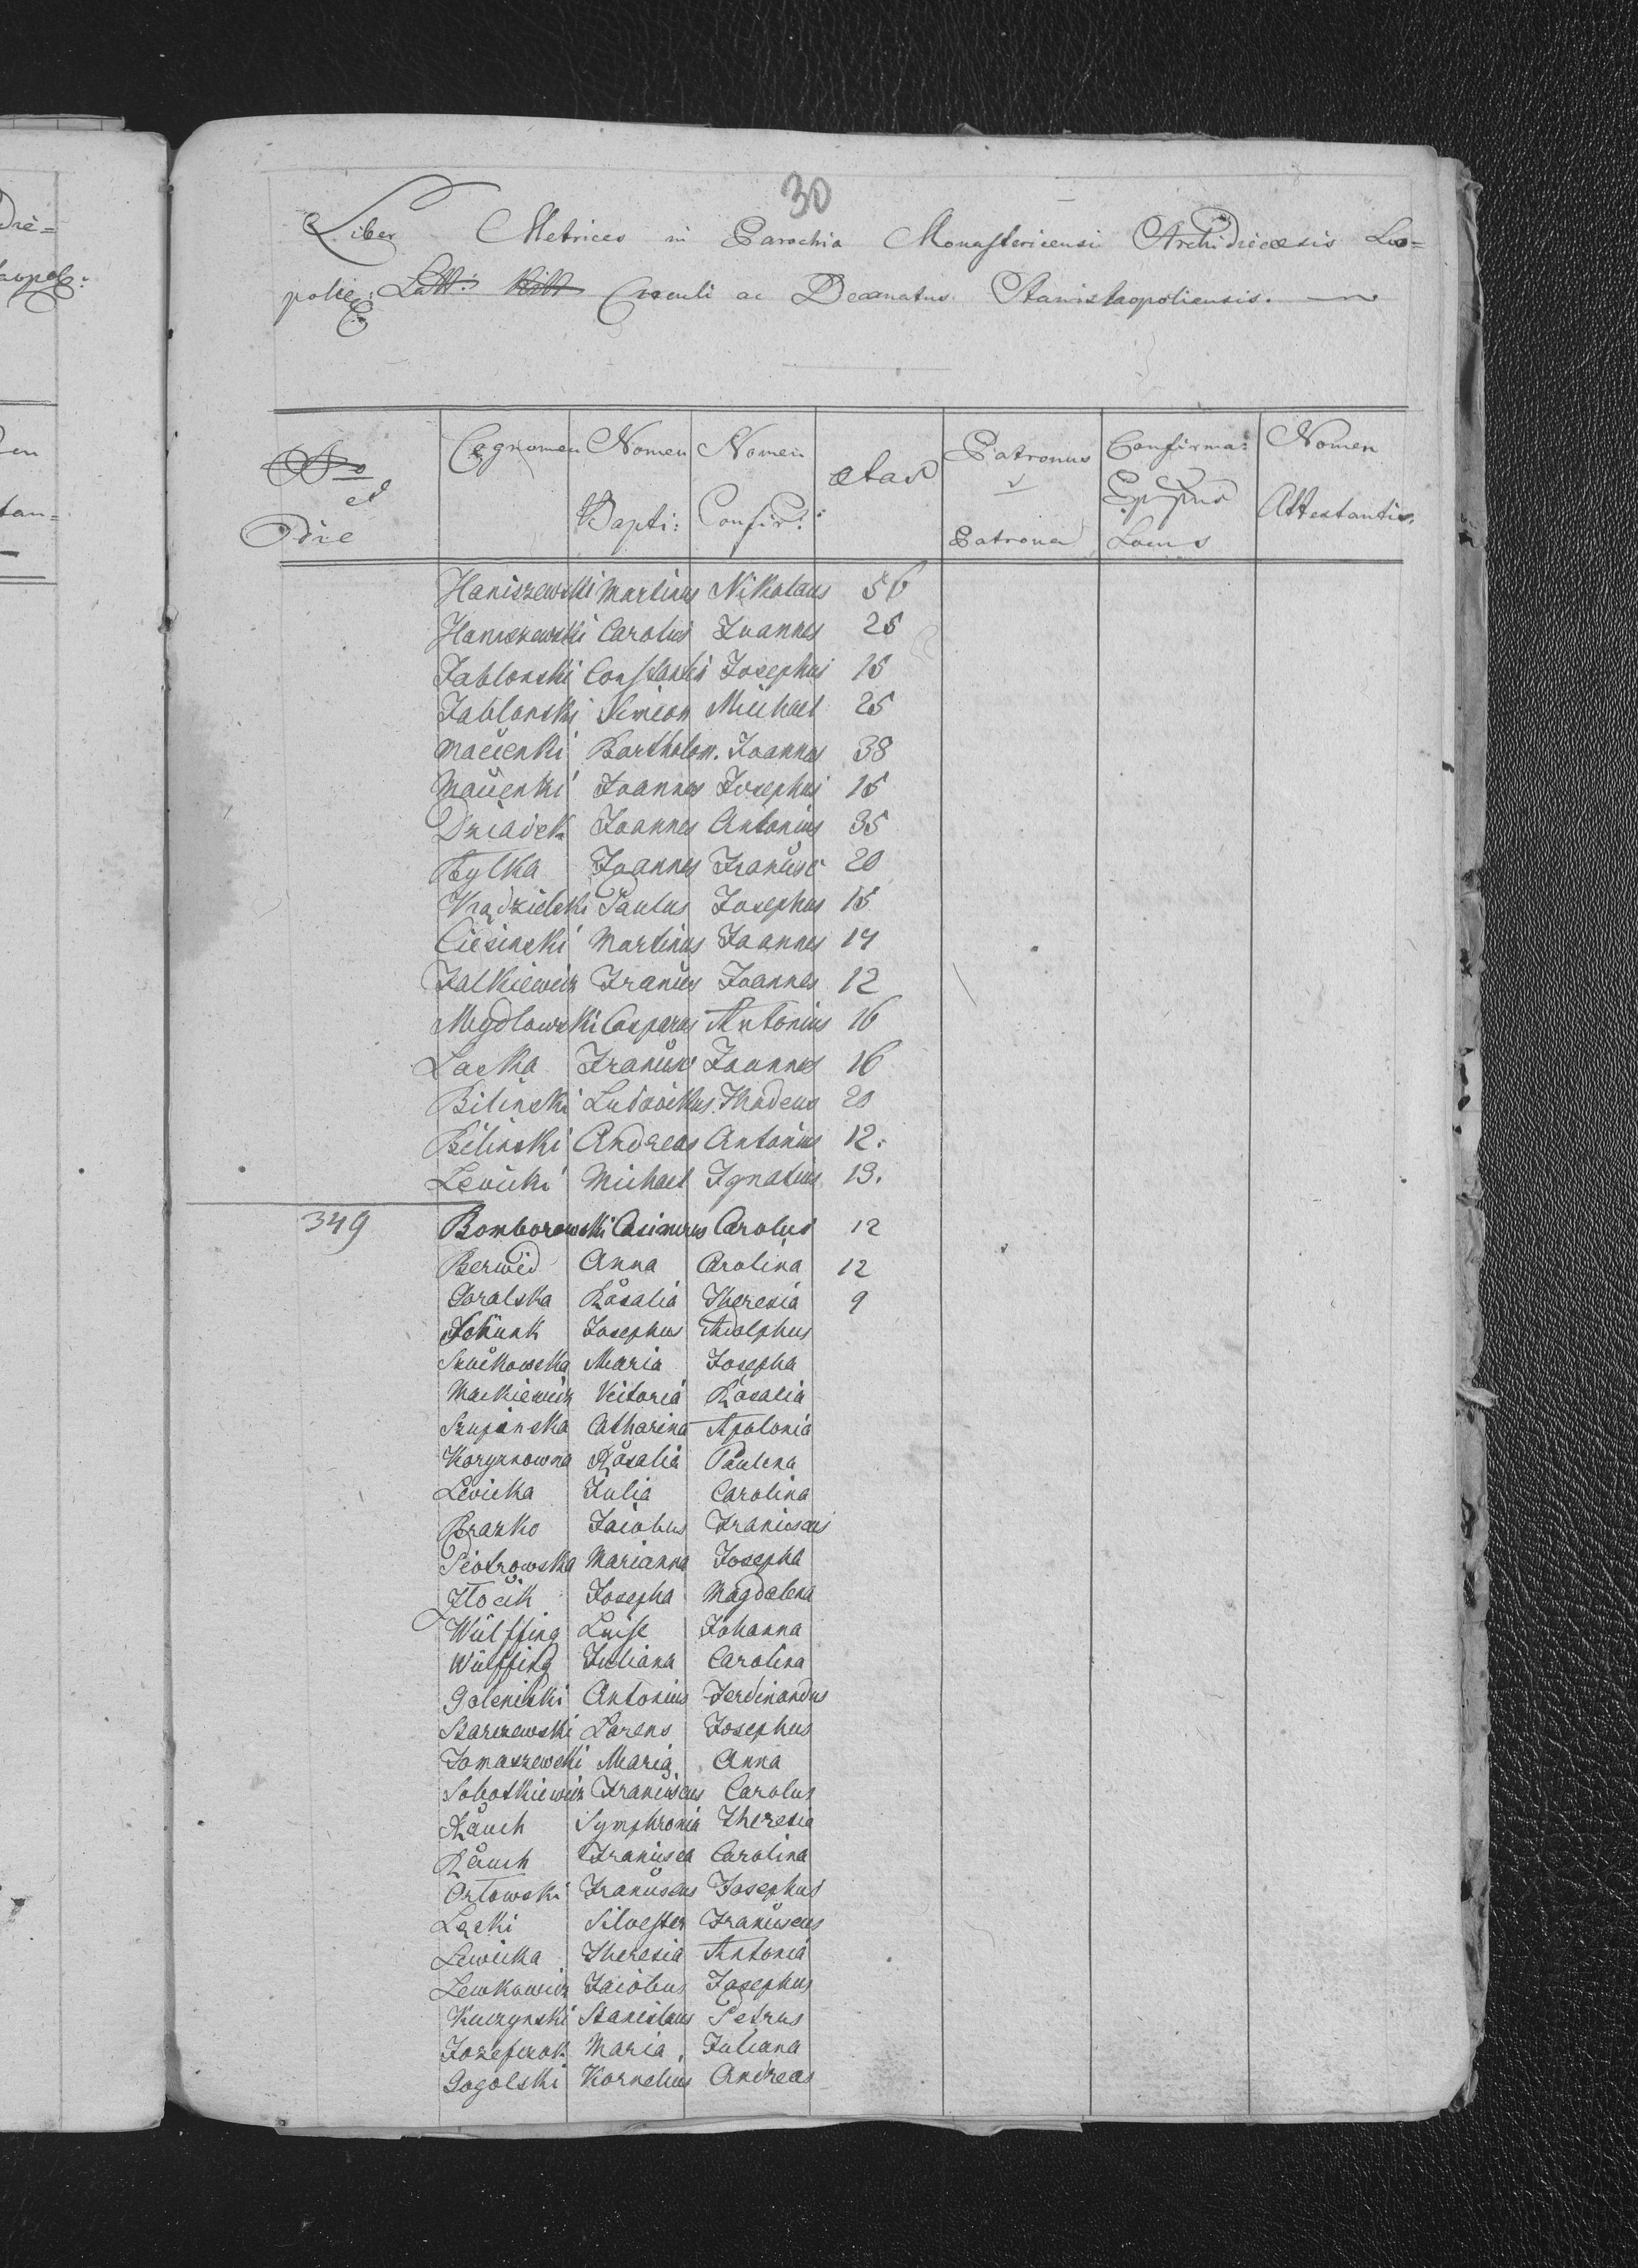 30
Liber Metrices in Parochia Monastericensi Archidiecesis Leo=
polie: Latt: Circuli ac Decanatus Stanislaopoliensis.
No et Die Cognomen Nomen Bapti: Nomen Confir: etas Patronus v Patrona Confirma: Eppus Locus Nomen Attestantis
Haniszewski Martinus Nikolaus 56
Haniszewski Carolus Joannes 25
Jablonski Constanti Josephus 15
Jablonski Simeon Michael 25
Macienki Bartholom. Joannes 38
Macienki Joannes Josephus 15
Dziadek Joannes Antonius 35
Bylka Joannes Francisc 20
Kradzielski Paulus Josephus 15
Ciesinski Martinus Joannes 14
Falkiewicz Francis Joannes 12
Mydlowski Casparus Antonius 16
Lacka Francisc Joannes 16
Bilinski Ludovikus Thadeus 20
Bilinski Andreas Antonius 12.
Levicki Michael Ignatius 13.
349 Bomborowski Casimirus Carolus 12
Berwid Anna Carolina 12
Goralska Rosalia Theresia 9
Schunk Josephus Adolphus
Szućkowska Maria Josepha
Mackiewicz Victoria Rosalia
Szujanska Catharina Apolonia
Korynowna Rosalia Paulina
Levicka Julia Carolina
Brazko Jacobus Franciscus
Piotrowska Marianna Josepha
Flocik Josepha Magdalena
Wülffing Luise Johanna
Wülffing Juliana Carolina
Golenicki Antonius Ferdinandus
Starzewski Larens Josephus
Tomaszewski Maria Anna
Sobotkiewicz Franciscus Carolus
Rauch Symphronia Theresia
Rauch Francisca Carolina
Orlowski Franciscus Josephus
Lęcki Silvester Franciscus
Lewicka Theresia Antonia
Lewkowicz Jacobus Josephus
Kuczynski Stanislaus Petrus
Jozefczok Maria Juliana
Gogolski Kornelius Andreas